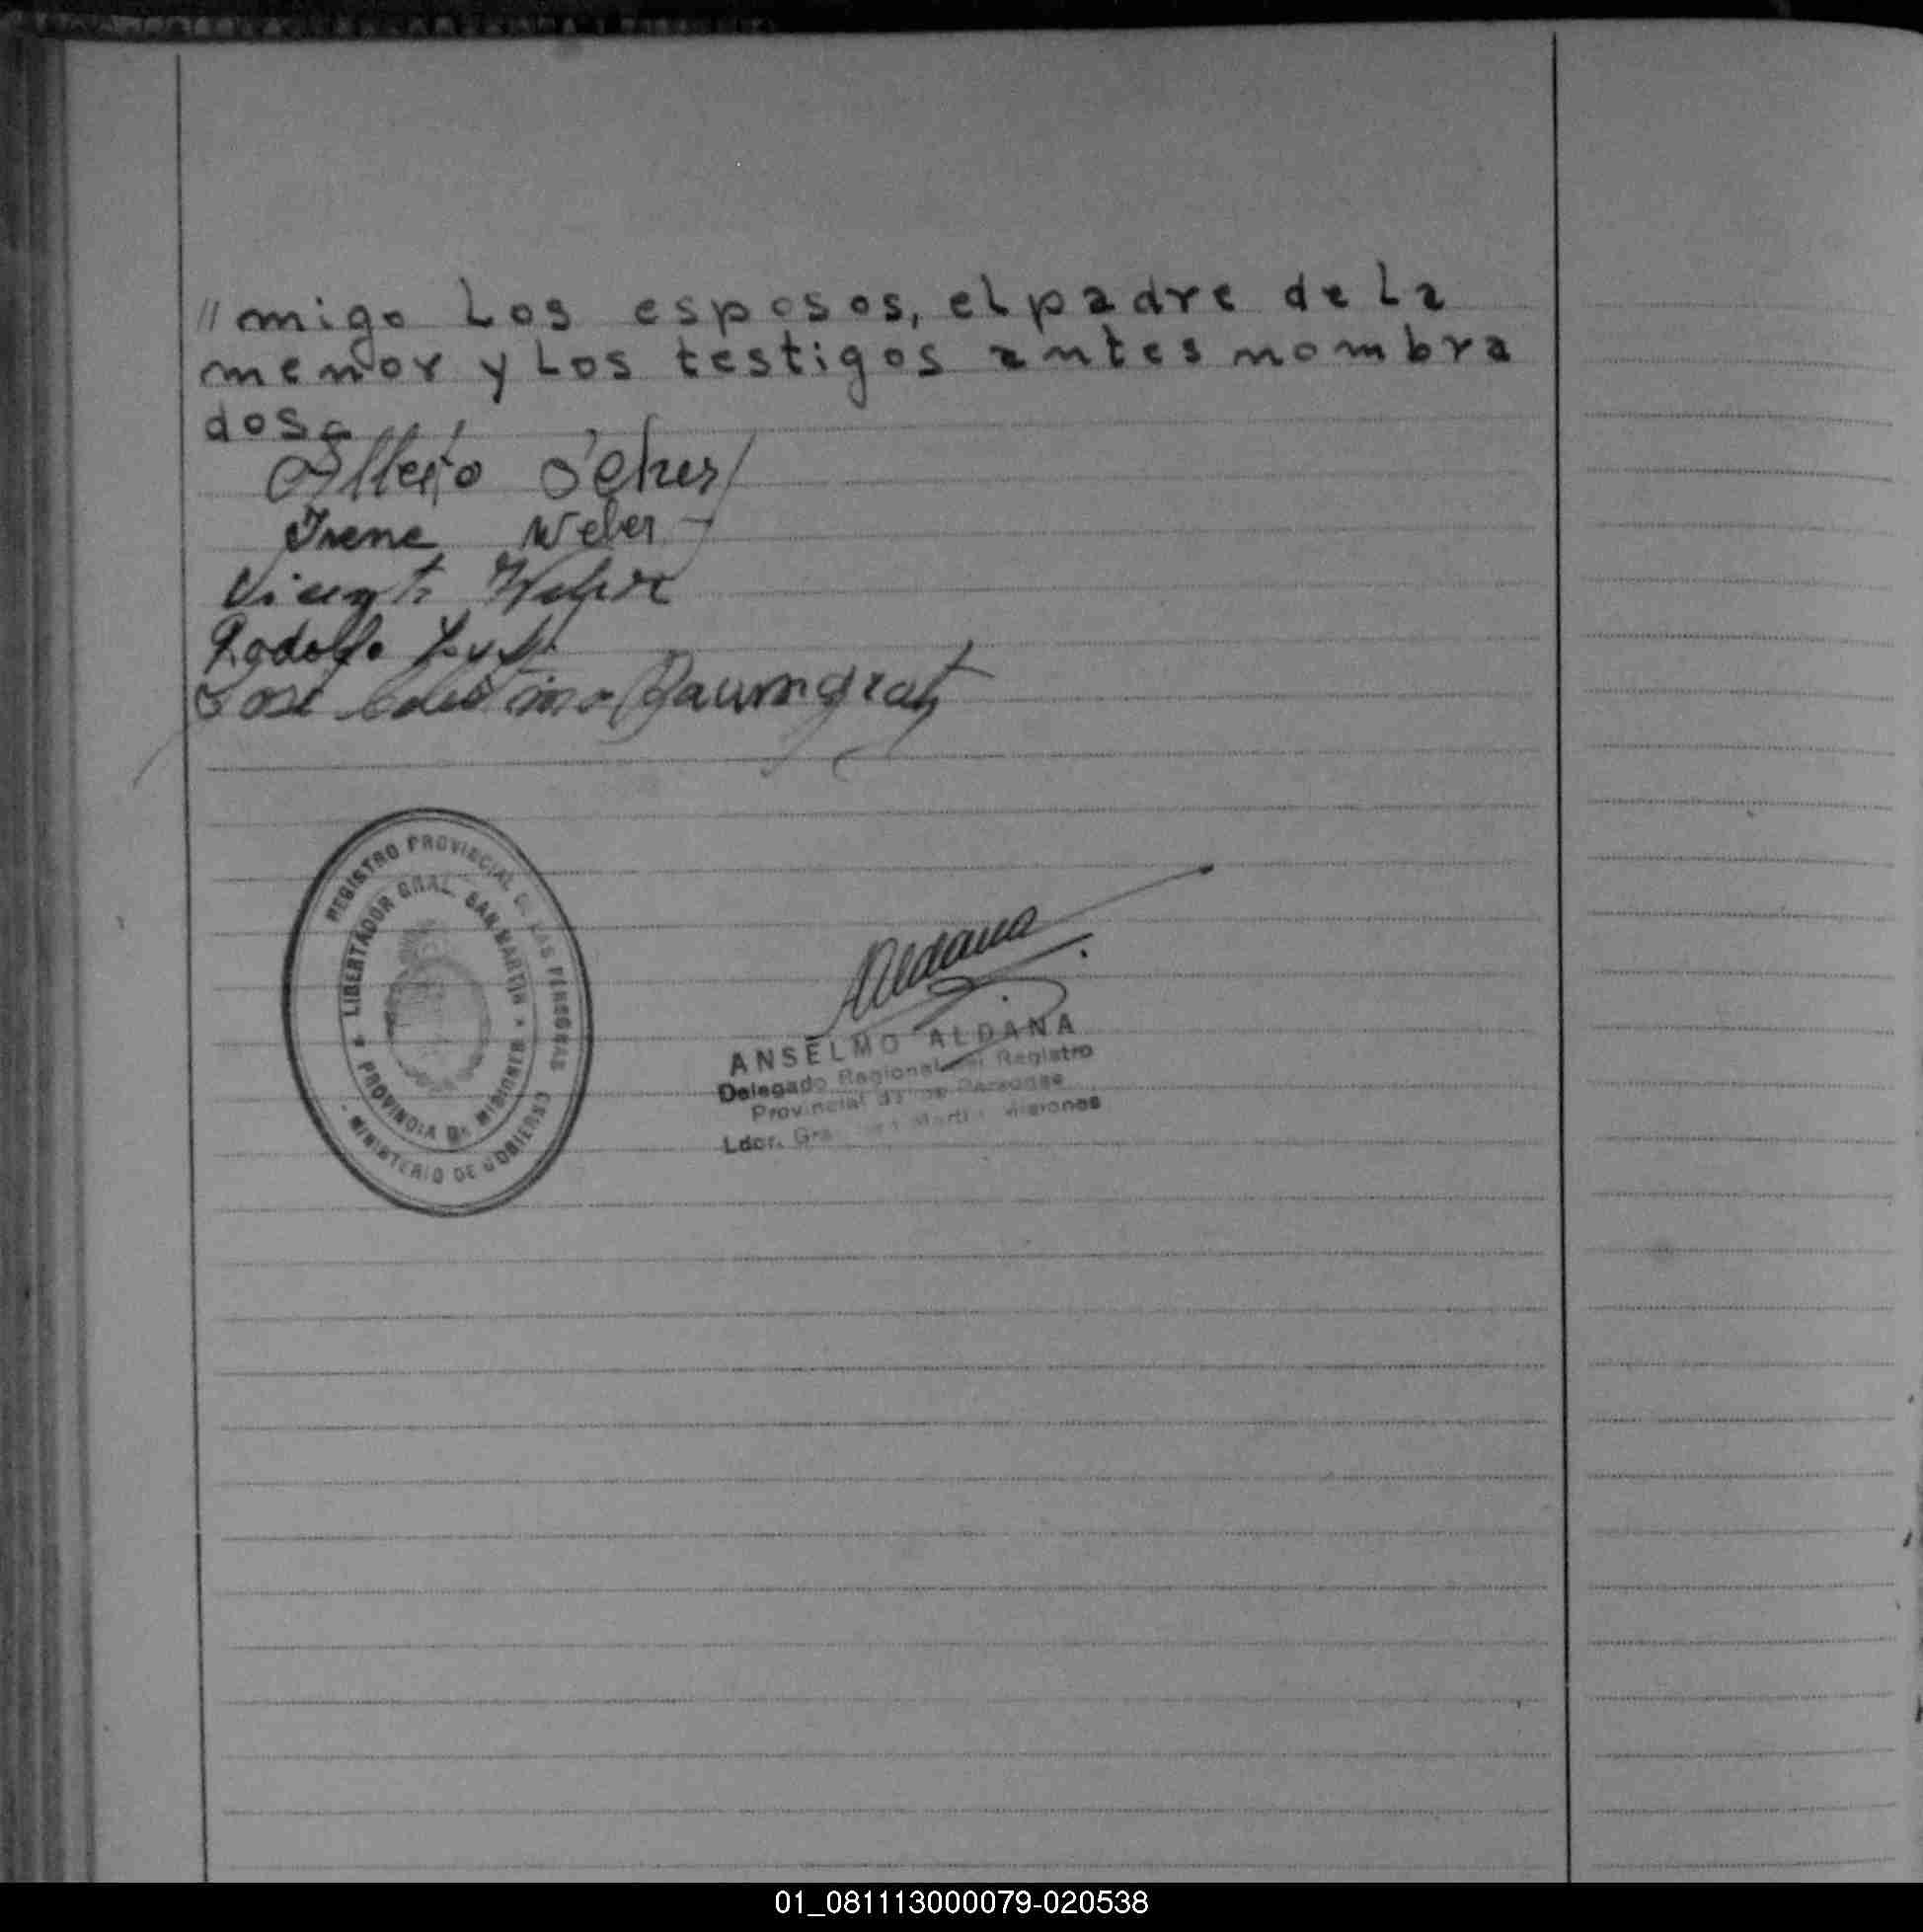 // migo Los esposos, el padre de La
menor y Los testigos antes nombra
dos.
Alberto
Irene Weber
Vicente Weber
Rodolfo
José Celestino Baumgratz
REGISTRO PROVINCIAL DE LAS PERSONAS
LIBERTADOR GRAL. SAN MARTIN
PROVINCIA DE MISIONES
MINISTERIO DE GOBIERNO
Aldana
ANSELMO ALDANA
Delegado Regional del Registro
Provincial de las Personas
Ldor. Gral. San Martín Misiones
01_081113000079-020538